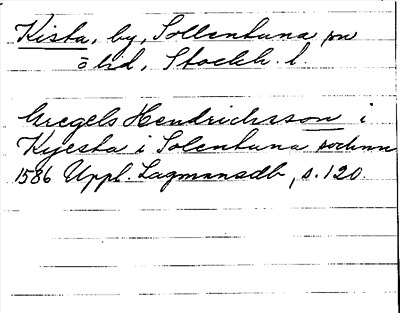 Kista, by, Sollentuna sn
ö hd, Stockh. l.
Gregels Hendrichsson i
Kijesta i Solentuna sochnn
1586 Uppl. Lagmansdb, s. 120.